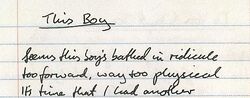 This Boy
Seems this boy's bathed in ridicule
too forward, way too physical
It's time that I had another